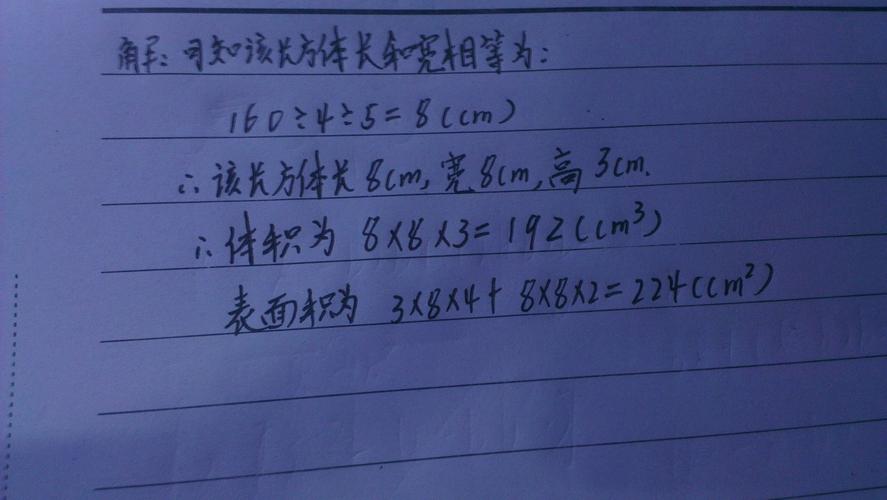 解：可知该长方体长和宽相等为：
160÷4÷5=8(cm)
∴该长方体长8cm,宽8cm,高3cm.
∴体积为 8×8×3=192(cm³)
表面积为 3×8×4+8×8×2=224(cm²)